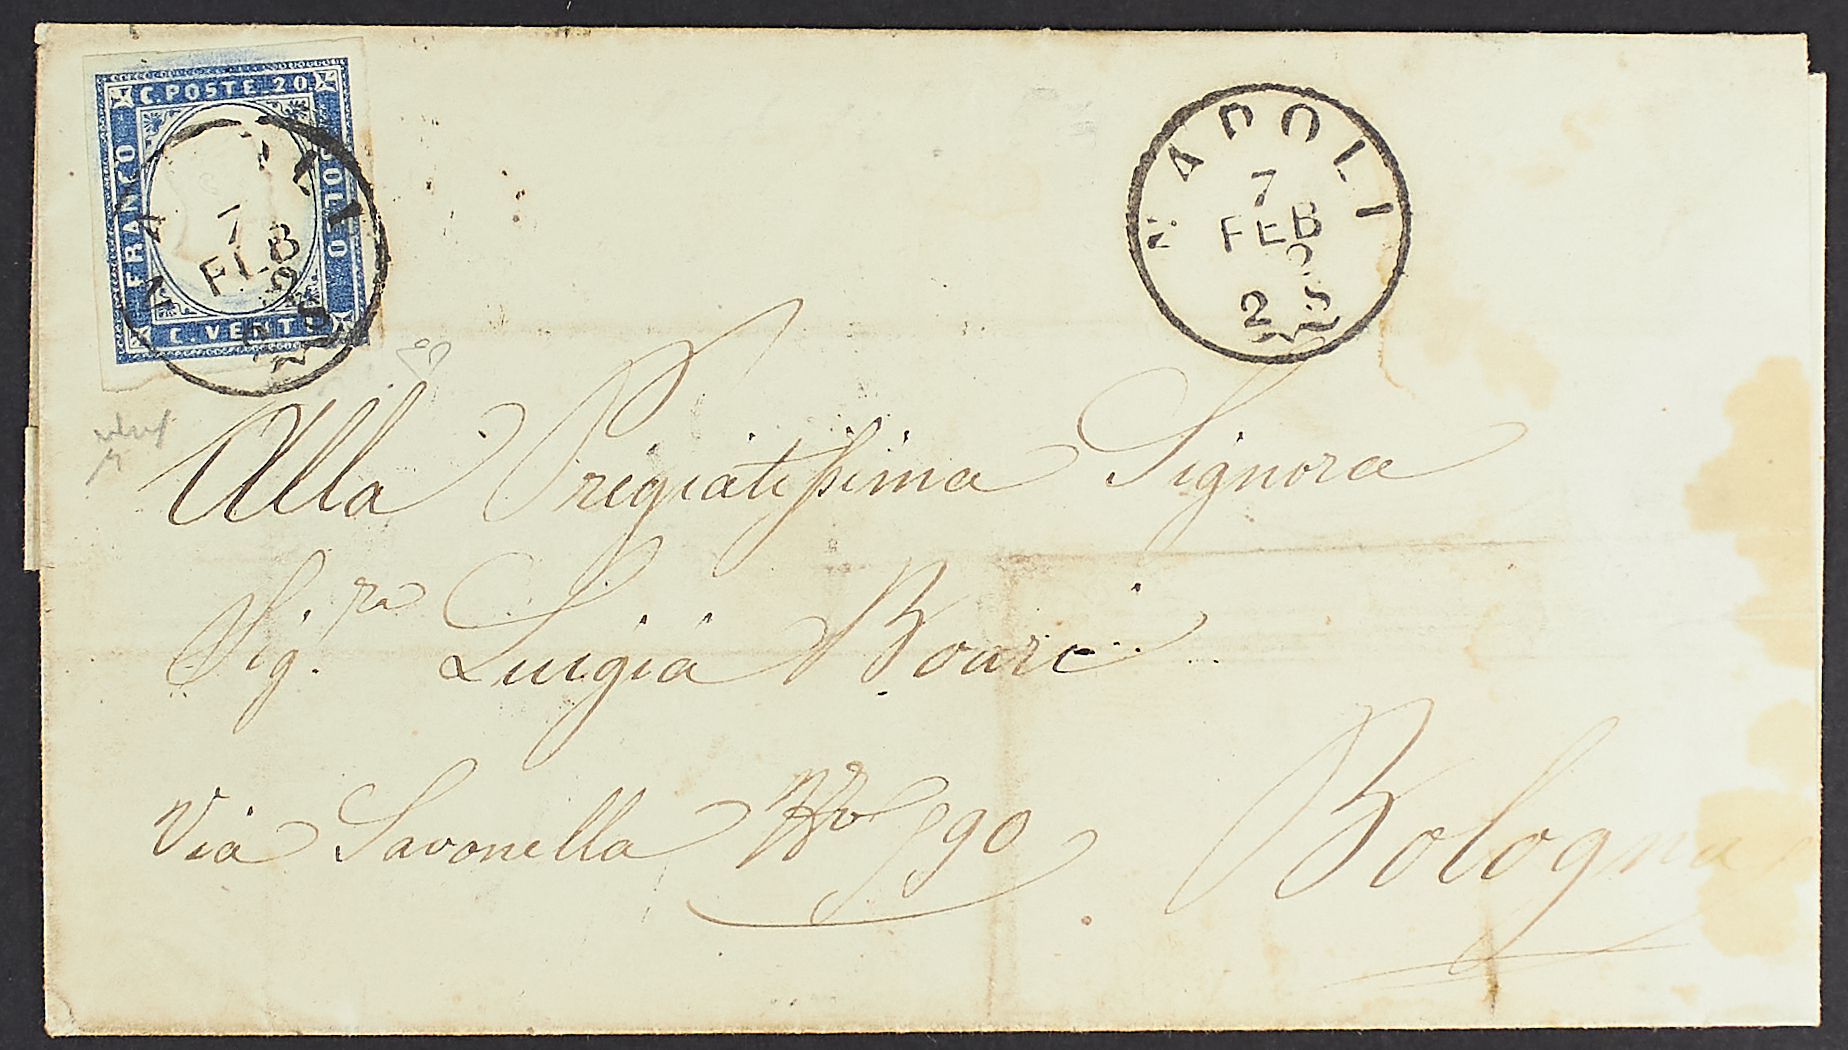 C. POSTE 20
FRANCO
BOLLO
C. VENTI
NAPOLI
7
FEB
NAPOLI
7
FEB
2 S
Alla Pregiatissima Signora
Sig.ra Luigia
Via Savonella No 90
Bologna